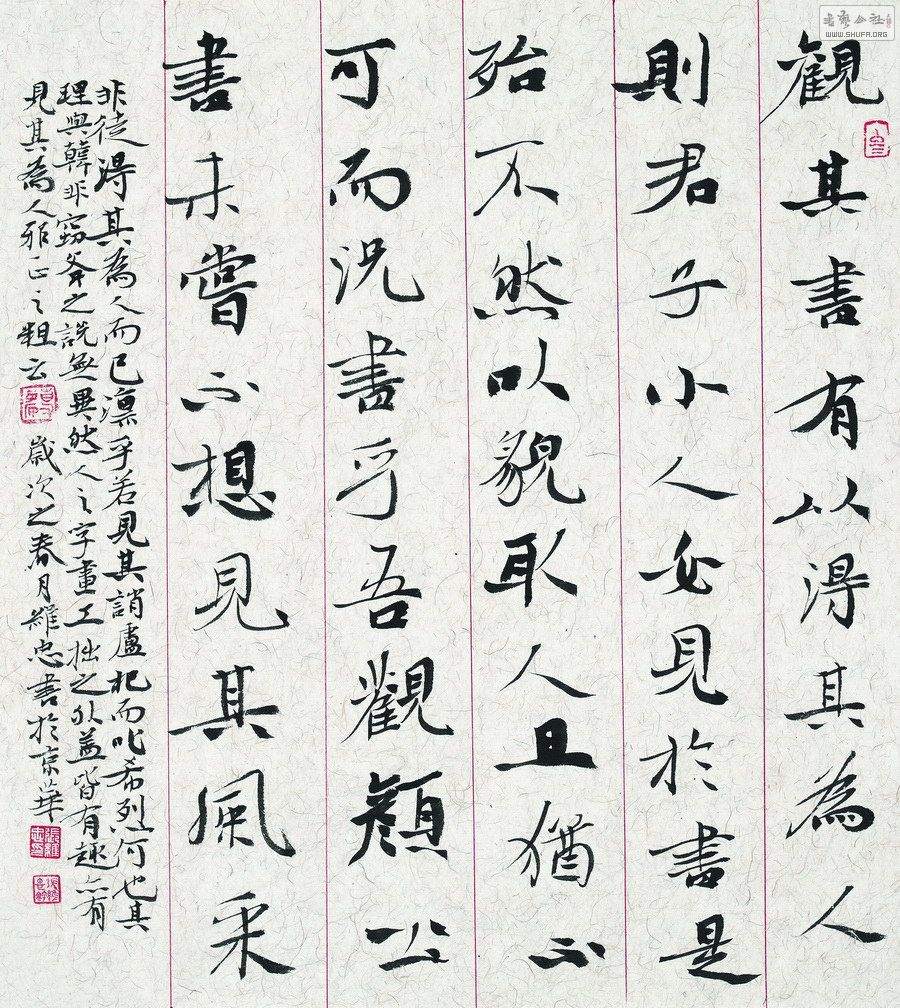 觀其書有以得其為人
則君子小人必見於書是
殆不然以貌取人且猶不
可而況書乎吾觀顏公
書未嘗不想見其風采
非徒得其為人而已凛乎若見其誚盧杞而叱希烈何也其
理與韓非窃斧之說無異然人之字畫工拙之外益皆有趣亦有
見其為人邪正之粗云 歲次之春月維忠書於京華
張維忠印
書藝公社
WWW.SHUFA.ORG